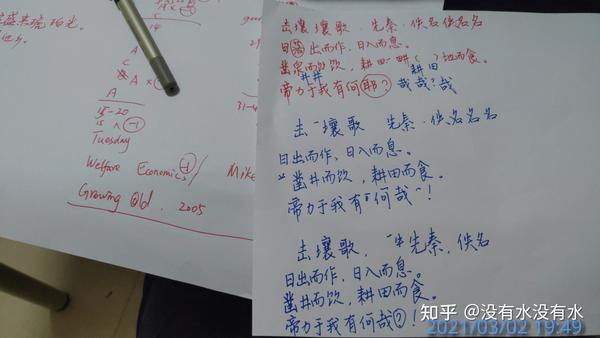 A
C
A
A
15-20
Tuesday
Welfare Economics -1 / Mike
Growing Old . 2005
31-4
击壤壤歌 . 先秦 . 佚名佚名名
日落出而作，日入而息。
凿泉而饮，耕田畊( )地而食。
井井
耕田
帝力于我有何耶？哉哉？哉
击壤歌 先秦 . 佚名名名
日出而作，日入而息。
凿井而饮，耕田而食。
帝力于我有何哉！
击壤歌，先秦，佚名
日出而作，日入而息。
凿井而饮，耕田而食。
帝力于我有何哉？！
知乎 @没有水没有水
2021/03/02 19:49